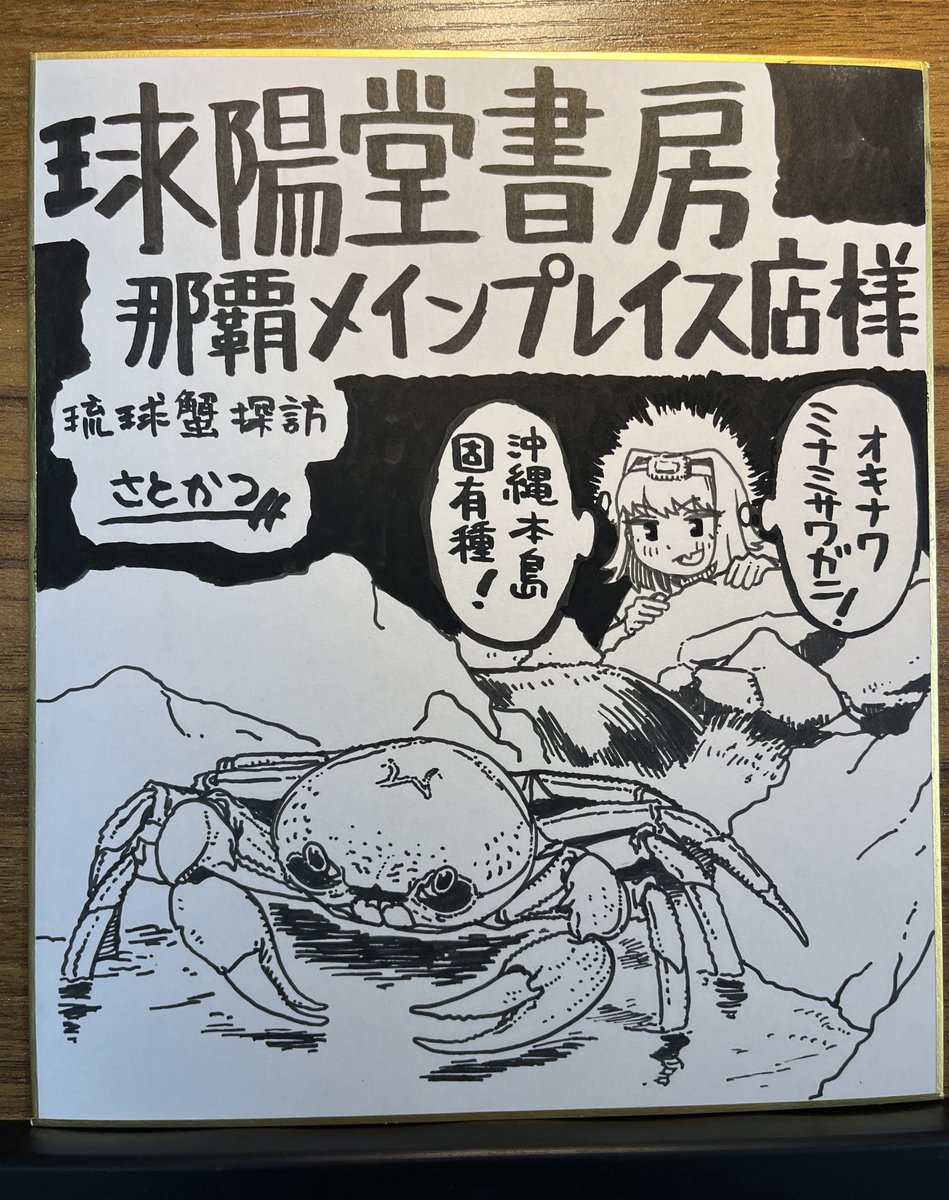 球陽堂書房
那覇メインプレイス店様
琉球蟹探訪
さとかつ
オキナワ
ミナミサワガニ!
沖縄本島
固有種!